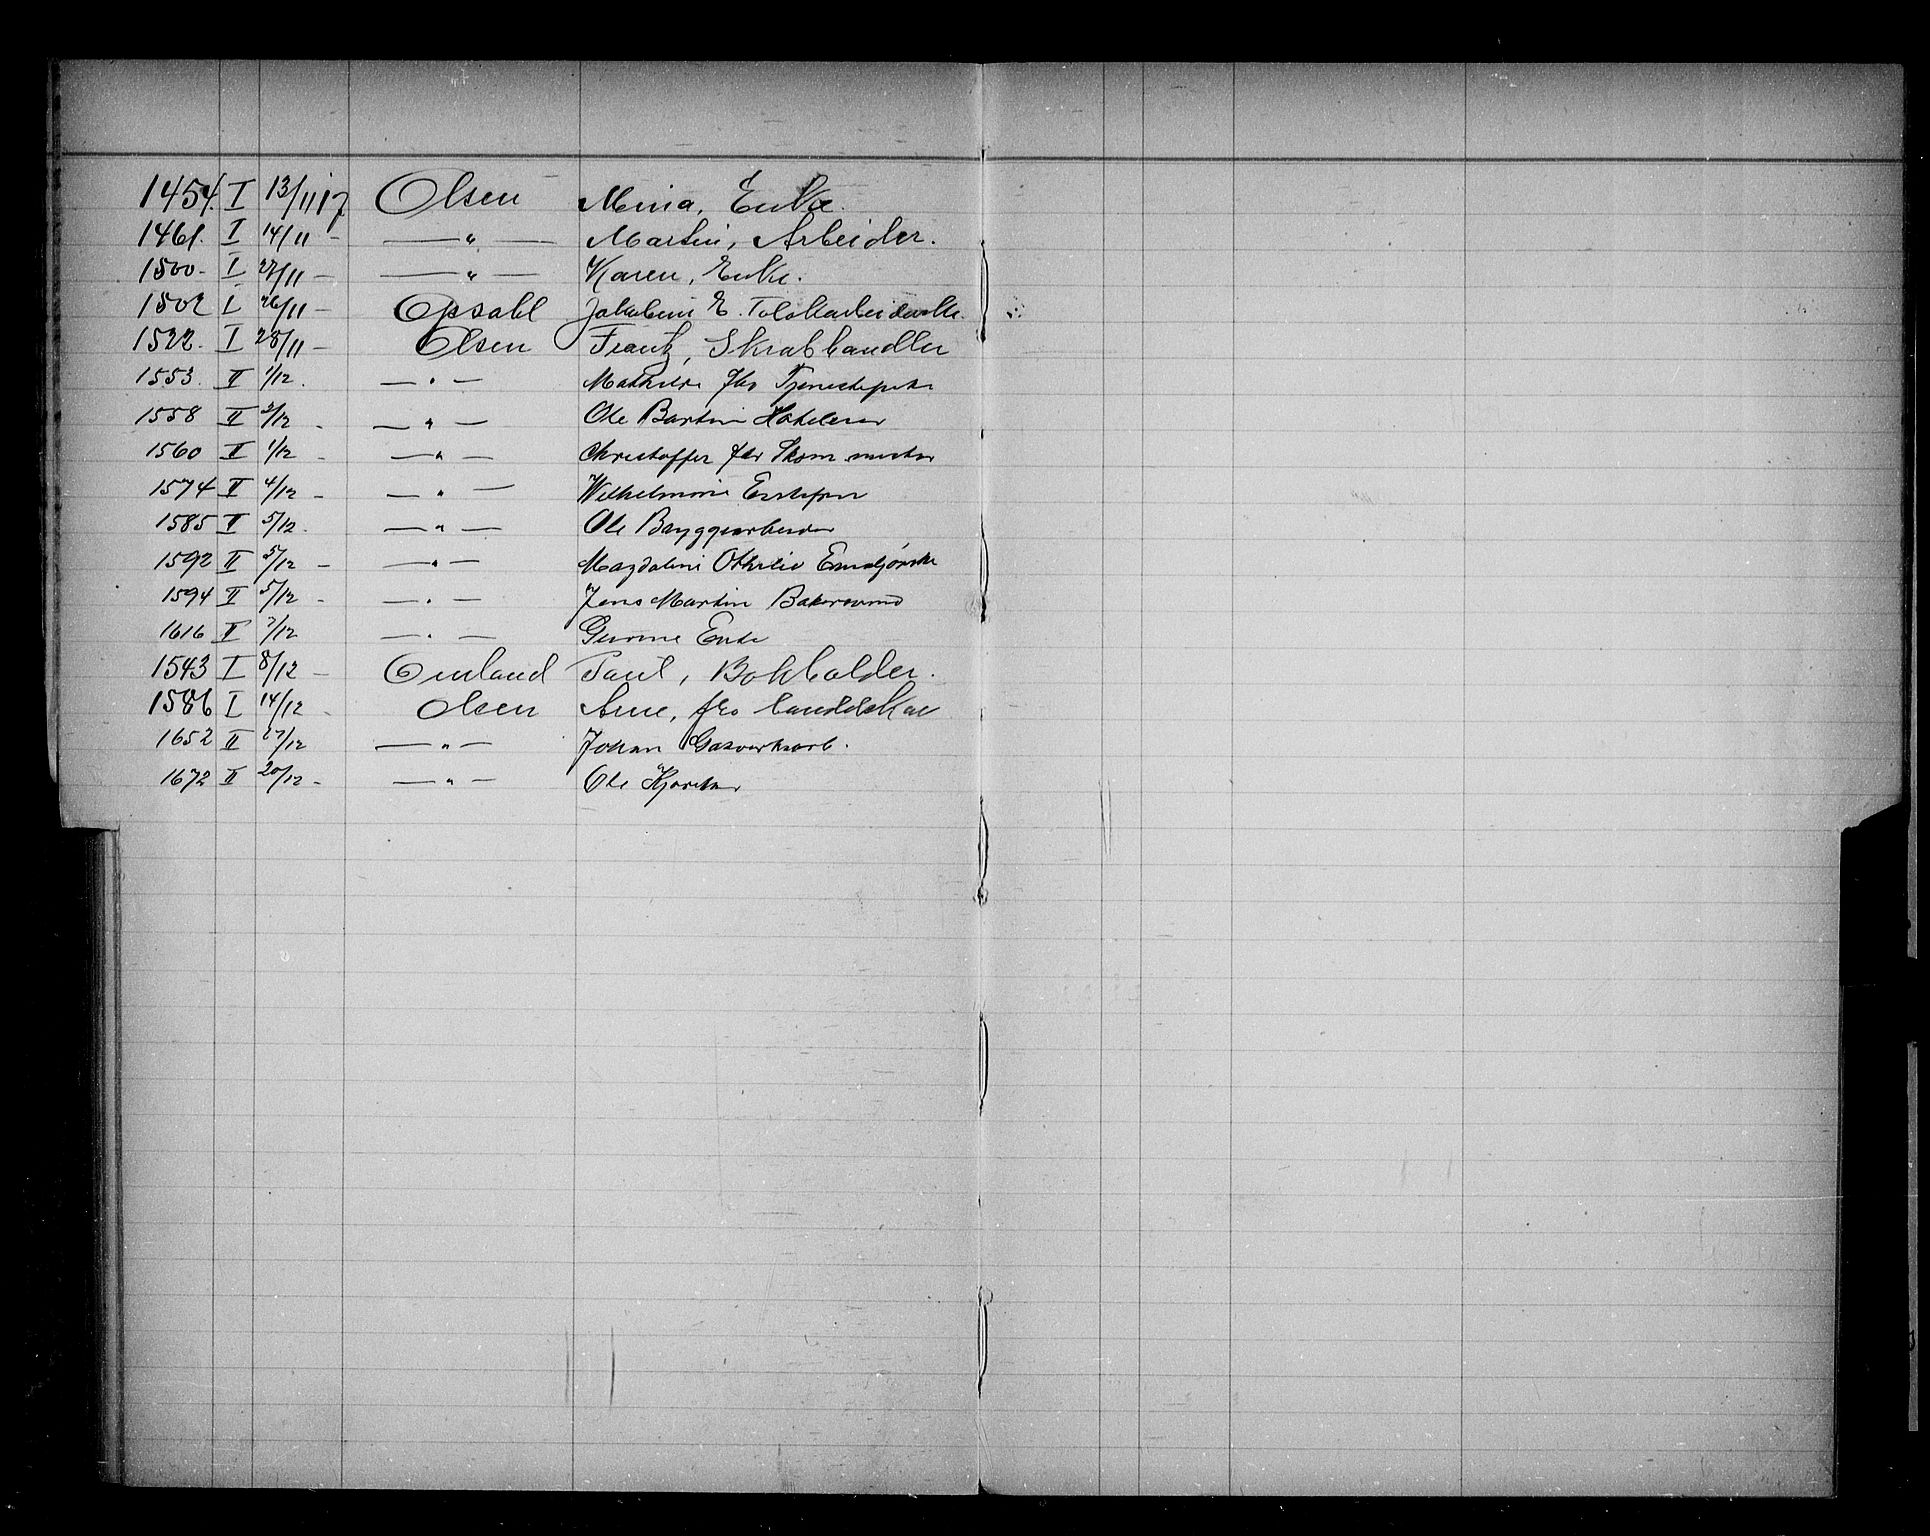 1454. I 13/11 17 Olsen Mina, Enke.
1461. I 14/11 - —"— Martin, Arbeider.
1500. I 27/11 - —"— Karen, Enke.
1502 I 26/11 - Opsahl Jakobine E.
1522. I 28/11 - Olsen Frantz, Skrabhandler
1553. II 1/12. —"— Mathilde fhv
1558 II 3/12 - —"— Ole Bartin
1560 II 1/12 - —"— Christoffer fhv
1574 II 4/12 - —"— Wilhelmine
1585 II 5/12. —"— Ole Bryggearbeider
1592 II 5/12 - —"— Magdaline Othilie
1594 II 5/12 - —"— Jens Martin Bakersvend
1616 II 7/12 —"— Gurine Enke
1543 I 8/12 - Omland Paul, Bokholder.
1586 I 14/12 - Olsen Arne, fhv
1652 II 17/12 —"— Johan Gasverksarb.
1672 II 20/12 - —"— Ole